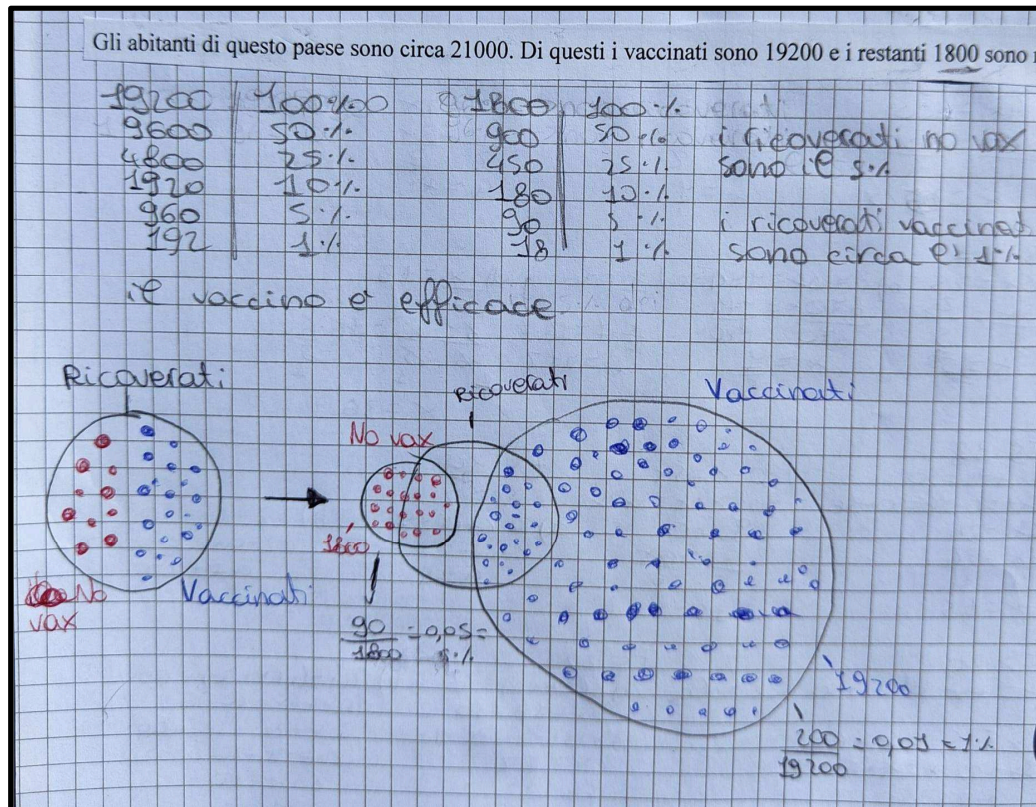 Gli abitanti di questo paese sono circa 21000. Di questi i vaccinati sono 19200 e i restanti 1800 sono
19200 100%
9600 50%
4800 25%
1920 10%
960 5%
192 1%
1800 100%
900 50%
450 25%
180 10%
90 5%
18 1%
i ricoverati no vax
sono il 5%
i ricoverati vaccinat
sono circa l'1%
il vaccino è efficace
Ricoverati
No
vax
Vaccinati
Ricoverati
No vax
1800
90/1800 = 0,05 =
5%
Vaccinati
19200
200/19200 = 0,01 = 1%